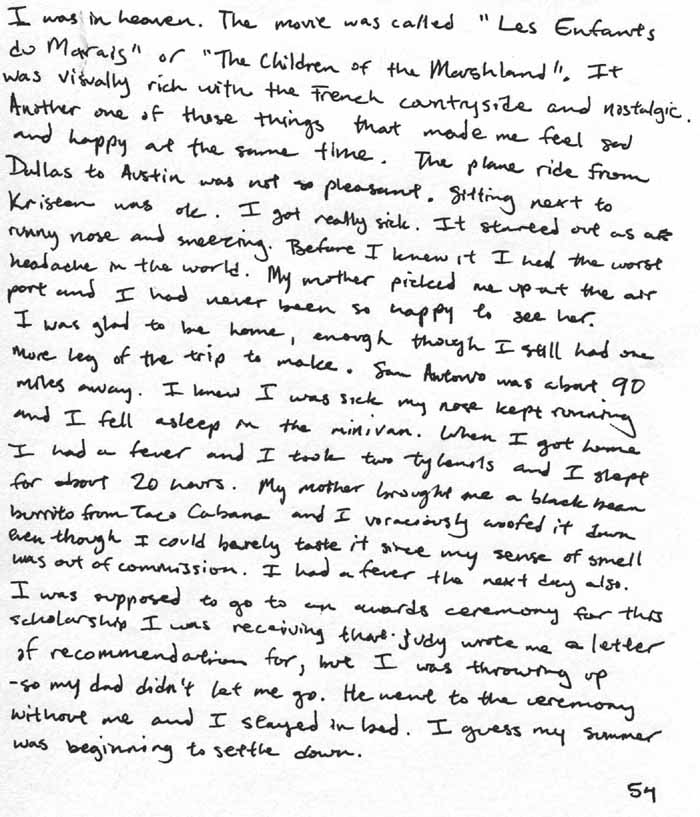 I was in heaven. The movie was called "Les Enfants
du Marais" or "The Children of the Marshland". It
was visually rich with the French countryside and nostalgic.
Another one of those things that made me feel sad
and happy at the same time. The plane ride from
Dallas to Austin was not so pleasant. Sitting next to
Kristen was ok. I got really sick. It started out as a
runny nose and sneezing. Before I knew it I had the worst
headache in the world. My mother picked me up at the air
port and I had never been so happy to see her.
I was glad to be home, enough though I still had one
more leg of the trip to make. San Antonio was about 90
miles away. I knew I was sick my nose kept running
and I fell asleep in the minivan. When I got home
I had a fever and I took two tylenols and I slept
for about 20 hours. My mother brought me a black bean
burrito from Taco Cabana and I voraciously woofed it down
even though I could barely taste it since my sense of smell
was out of commission. I had a fever the next day also.
I was supposed to go to an awards ceremony for this
scholarship I was receiving that Judy wrote me a letter
of recommendation for, but I was throwing up
-so my dad didn't let me go. He went to the ceremony
without me and I stayed in bed. I guess my summer
was beginning to settle down.
54